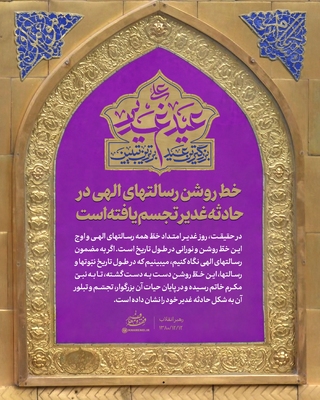 عید غدیر
خط روشن رسالتهای الهی در
حادثه غدیر تجسم یافته است
در حقیقت، روز غدیر امتداد خط همه رسالتهای الهی و اوج
این خط روشن و نورانی در طول تاریخ است. اگر به مضمون
رسالتهای الهی نگاه کنیم، میبینیم که در طول تاریخ نبوتها و
رسالتها، این خط روشن دست به دست گشته، تا به نبیّ
مکرم خاتم رسیده و در پایان حیات آن بزرگوار، تجسّم و تبلور
آن به شکل حادثه غدیر خود را نشان داده است.
رهبر انقلاب